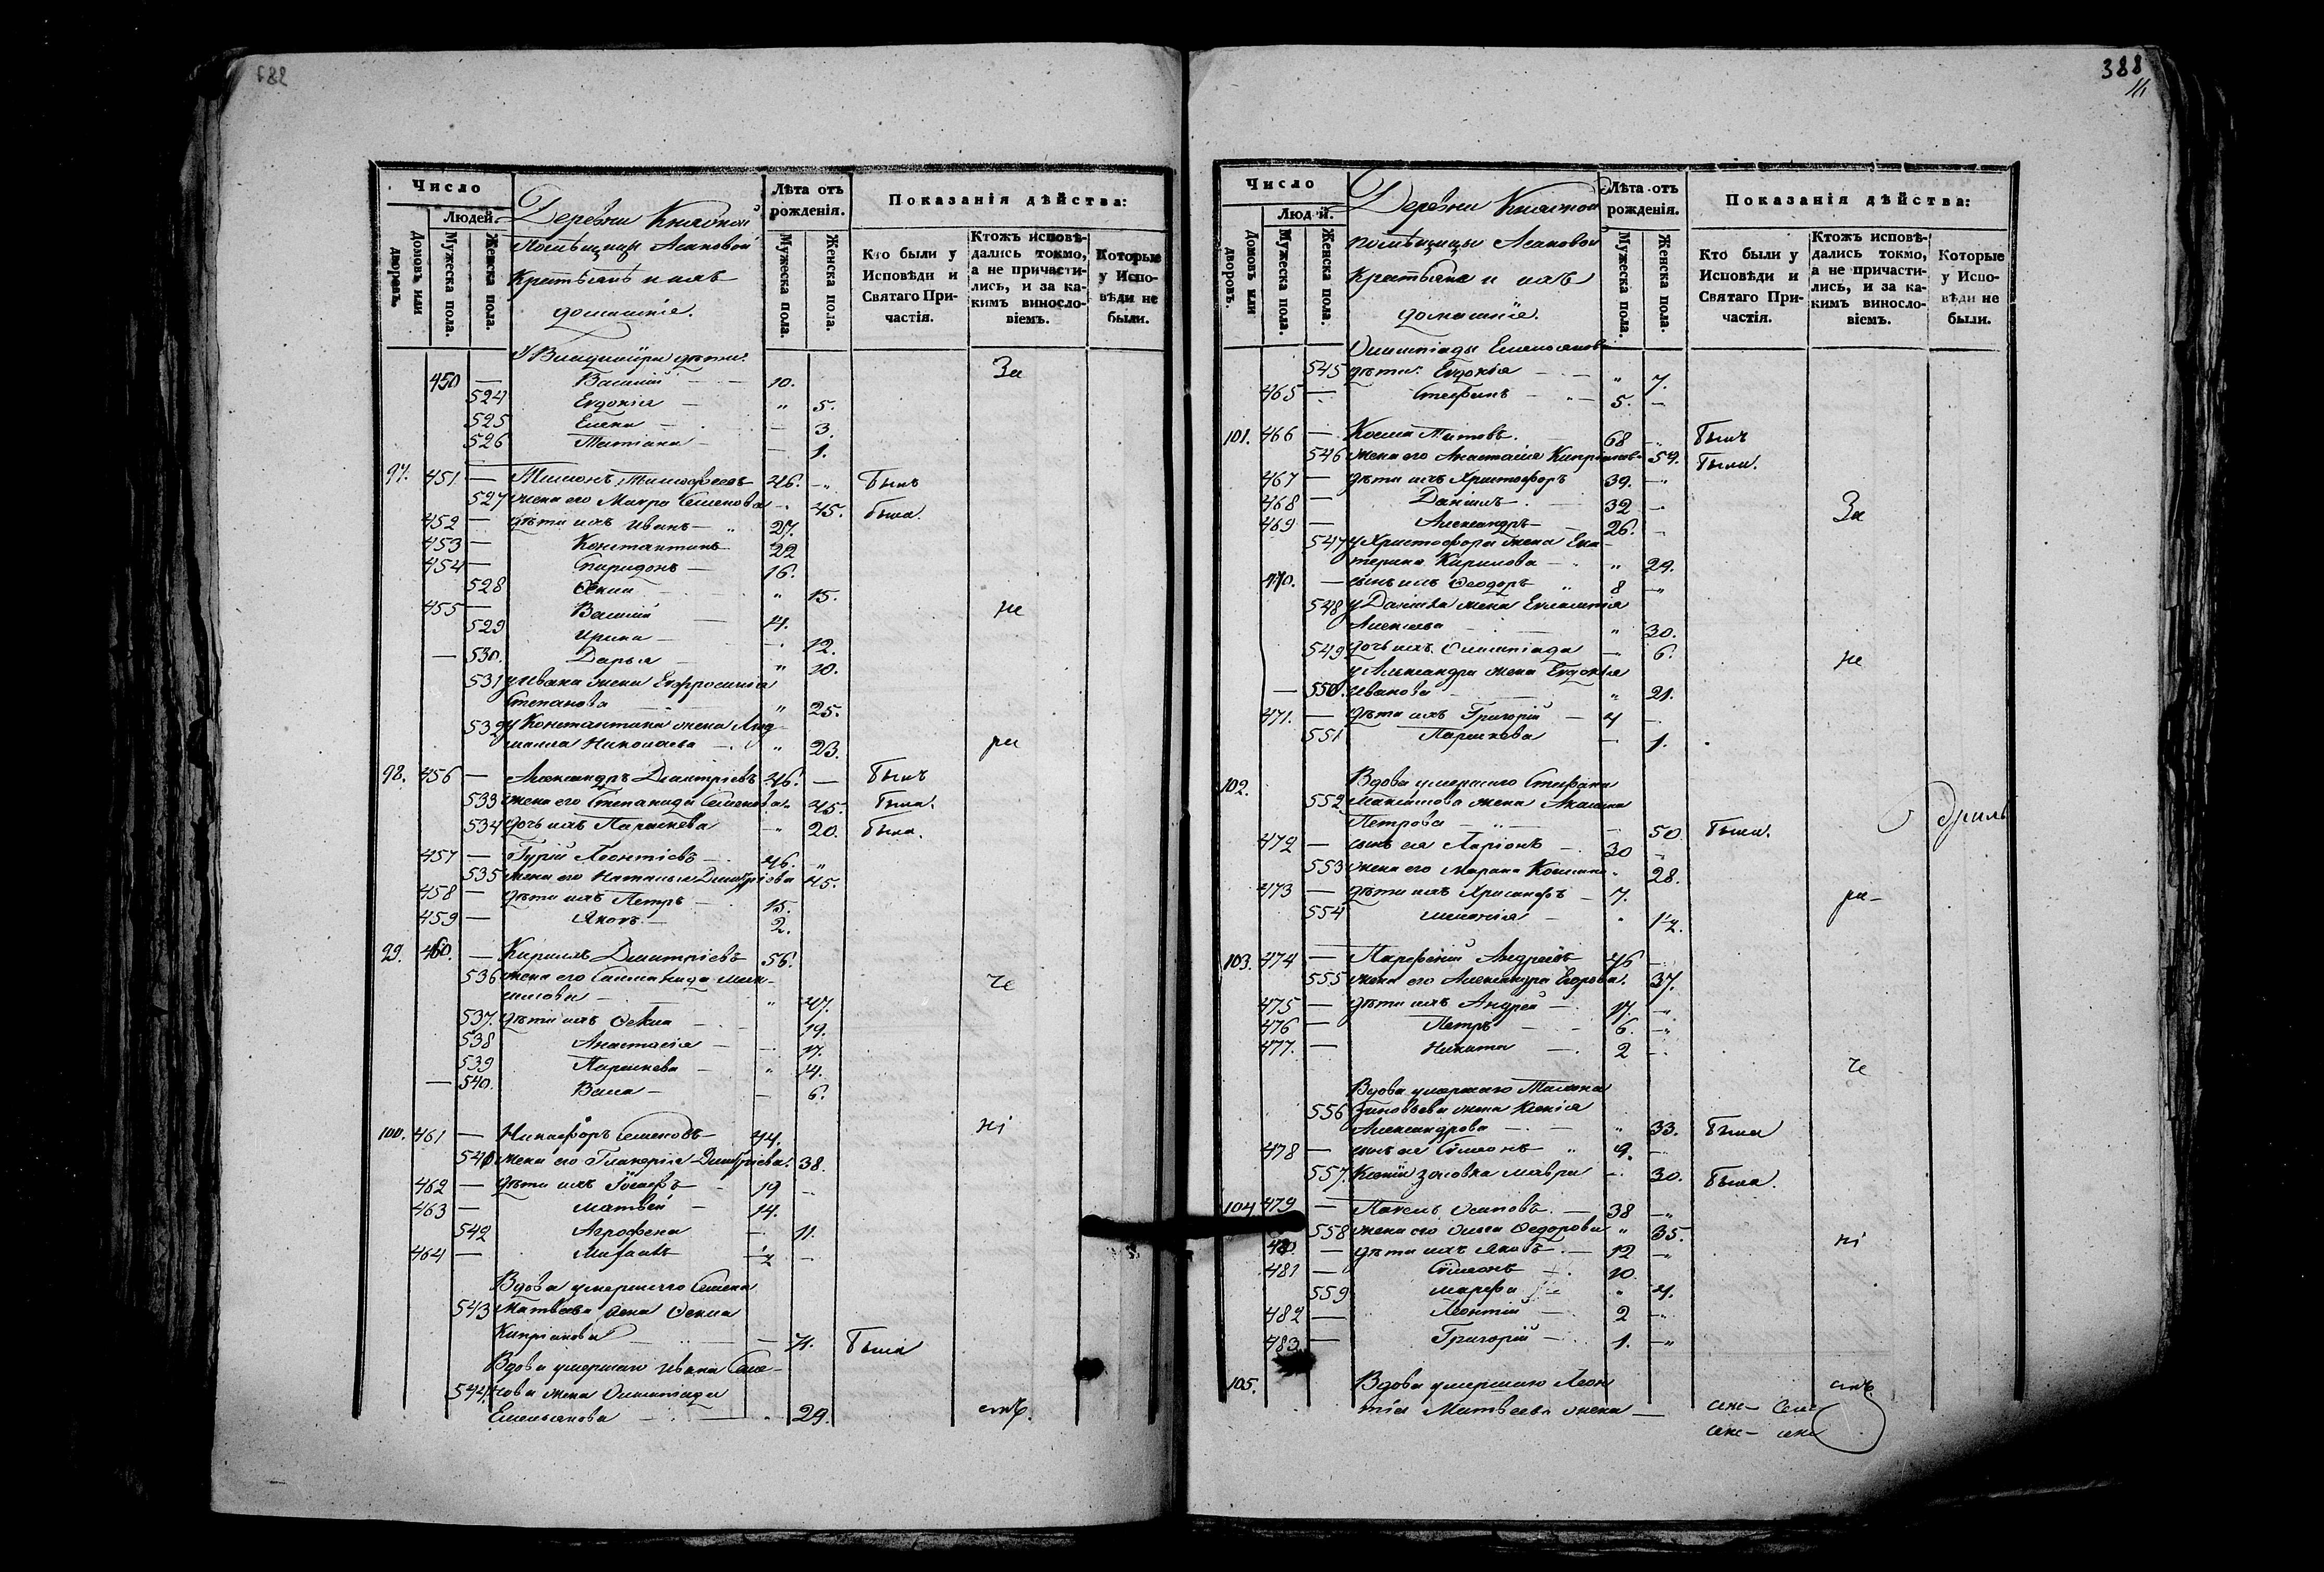 682
Число
Людей.
Домовъ или дворовъ.
Мужеска пола.
Женска пола.
Деревни Княжной
помѣщицы Асановой
Крестьянѣ и ихъ
домашніе.
Лѣта отъ рожденія.
Мужеска пола.
Женска пола.
Показанія дѣйства:
Кто были у Исповѣди и Святаго Причастія.
Ктожъ исповѣдались токмо, а не причастились, и за какимъ винословіемъ.
Которые у Исповѣди не были.
У дѣти:
450 — Василій — 10. За
524 Евдокія — " 5.
525 Елена — 3.
526 Татіана — 1.
97. 451 — Тимофеевъ 46. — Былъ
527 жена его Мавра Семенова 45. была.
452 — дѣти ихъ Иванъ — 27.
453 — Константинъ 22
454 — Спиридонъ — 16.
528 — " 15.
455 — Василій — 4. не
529 Ирина — 12.
— 530. Дарья — " 10.
531 у Ивана жена Евфросинія
Степанова " 25.
532 у Константина жена Люд
мила Николаева — " 23. ра
98. 456 — Александръ Димитріевъ 46. — Былъ
533 жена его Степанида Семенова 45. Была.
534 дочь ихъ Параскева — " 20. Была.
457 — Гурій Леонтіевъ — 46. "
535 жена его Наталья Димитріева 45.
458 — дѣти ихъ Петръ — 15.
459 — Яковъ — 2.
99. 460. — Кириллъ Димитріевъ 56.
536 жена его че
— " 47.
537. дѣти ихъ — 19.
538 Анастасія — 17.
539 Параскева — " 14.
— 540. Васса — 6.
100. 461 — Никифоръ Семеновъ — 44. ні
541 жена его Гликерія Димитріева 38.
462 — дѣти ихъ Іосифъ — 19 —
463 — Матвей — 14.
542 Агрофена — 11.
464 — Михаилъ 1/2 —
Вдова умершаго Семена
543 Матвеева жена
Кипріанова — 71. Была
Вдова умершаго Ивана Семе-
544. нова жена Олимпіада
Емельянова — 29. емъ.
388
Число
Людей.
Домовъ или дворовъ.
Мужеска пола.
Женска пола.
Деревни Княжной
помѣщицы Асановой
Крестьяне и ихъ
домашніе.
Лѣта отъ рожденія.
Мужеска пола.
Женска пола.
Показанія дѣйства:
Кто были у Исповѣди и Святаго Причастія.
Ктожъ исповѣдались токмо, а не причастились, и за какимъ винословіемъ.
Которые у Исповѣди не были.
Олимпіады Емельяновой
545 дѣти: Евдокія — " 7.
465 — Стефанъ — 5. —
101. 466 — Косма Титовъ. 68 — Былъ
546 жена его Анастасія Кипріанова 59. Была.
467 — дѣти ихъ Христофоръ 39. —
468 — Даніилъ — 32 — За
469 — Александръ — 26. —
547 у Христофора жена Ека-
терина Кирилова — " 29.
470. — сынъ ихъ Ѳеодоръ " 8 —
548 у Даніила жена
Алексеева — " 30.
549 дочь ихъ Олимпіада — 6. не
у Александра жена Евдокія
— 550. Иванова — " 21.
471. — дѣти ихъ Григорій — 4 —
551 Параскева — 1.
102. Вдова умершаго Стефана
552 Максимова жена Акилина
Петрова — " — 50 Была.
472 — сынъ ея Ларіонъ — 30
553 жена его Марина " 28.
473 — дѣти ихъ Хрисанфъ — 7. ра-
554 — " 1/2.
103. 474 — Парфеній Андреевъ 46 —
555 жена его Александра Егорова. 37.
475 — дѣти ихъ Андрей — 17. —
476 — Петръ — 6. —
477. — Никита — 2 —
че
Вдова умершаго
556 Зиновьева жена Ксенія
Александрова — " 33. Была
478 — сынъ ея Симеонъ " 9. —
557. Ксеніи золовка Мавра — 30. Была.
104 479 — Павелъ Осиповъ. — 38 —
558 жена его Ольга Ѳедорова " 35.
480. — дѣти ихъ Яковъ — 12 — ні
481 — Симеонъ — 10.
559 Марфа " 4.
482 — Леонтій — 2 —
483. — Григорій — 1. —
105. Вдова умершаго Леон
тія Матвеева жена — емъ.